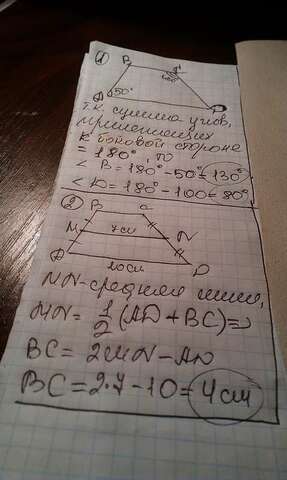 1
B C
100°
A 50° D
т.к. сумма углов,
прилежащих
к боковой стороне
= 180°, то
< B = 180° - 50° = 130°
< D = 180° - 100 = 80°
2
B C
M 7 см N
A D
10 см
MN - средняя линия,
MN = 1/2 (AD + BC) =>
BC = 2MN - AD
BC = 2·7 - 10 = 4 см